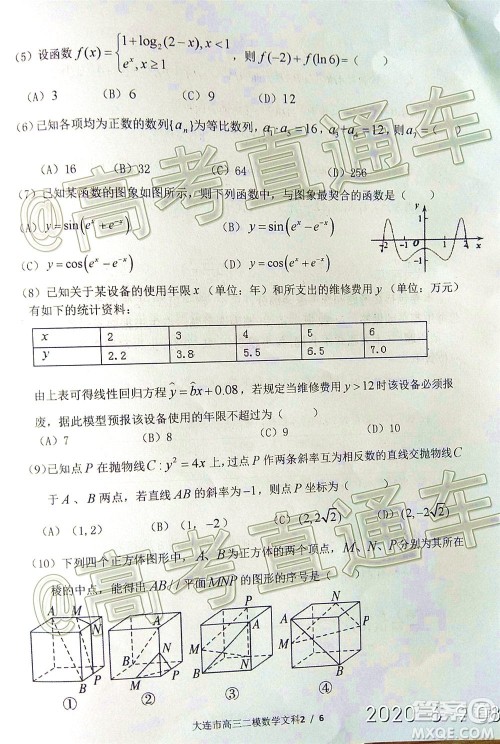 (5) 设函数 f(x)={1+log₂(2−x), x<1
eˣ, x≥1 ，则 f(−2)+f(ln6)=（ ）
(A) 3 (B) 6 (C) 9 (D) 12
(6)已知各项均为正数的数列{aₙ}为等比数列，a₁·a₅=16，a₃+a₄=12，则a₇=（ ）
(A) 16 (B) 32 (C) 64 (D) 256
(7) 已知某函数的图象如图所示，则下列函数中，与图象最契合的函数是（ ）
(A) y=sin(eˣ+e⁻ˣ) (B) y=sin(eˣ−e⁻ˣ)
(C) y=cos(eˣ−e⁻ˣ) (D) y=cos(eˣ+e⁻ˣ)
y 1 -2 -1 O 1 2 x -1
(8) 已知关于某设备的使用年限 x（单位：年）和所支出的维修费用 y（单位：万元）
有如下的统计资料：
x 2 3 4 5 6
y 2.2 3.8 5.5 6.5 7.0
由上表可得线性回归方程 ŷ=b̂x+0.08，若规定当维修费用 y>12 时该设备必须报
废，据此模型预报该设备使用的年限不超过为（ ）
(A) 7 (B) 8 (C) 9 (D) 10
(9)已知点 P 在抛物线 C: y²=4x 上,过点 P 作两条斜率互为相反数的直线交抛物线C
于 A 、B 两点，若直线 AB 的斜率为−1，则点 P 坐标为（ ）
(A) (1,2) (B) (1，-2) (C) (2,2√2) (D) (2,-2√2)
(10) 下列四个正方体图形中，A、B 为正方体的两个顶点，M、N、P 分别为其所在
棱的中点，能得出 AB// 平面 MNP 的图形的序号是（ ）
A M N B P
A M N B P
P A M N B
A P M N B
① ② ③ ④
大连市高三二模数学文科2 / 6
@高考直通车
@高考直通车
作业帮
MXQE.COM